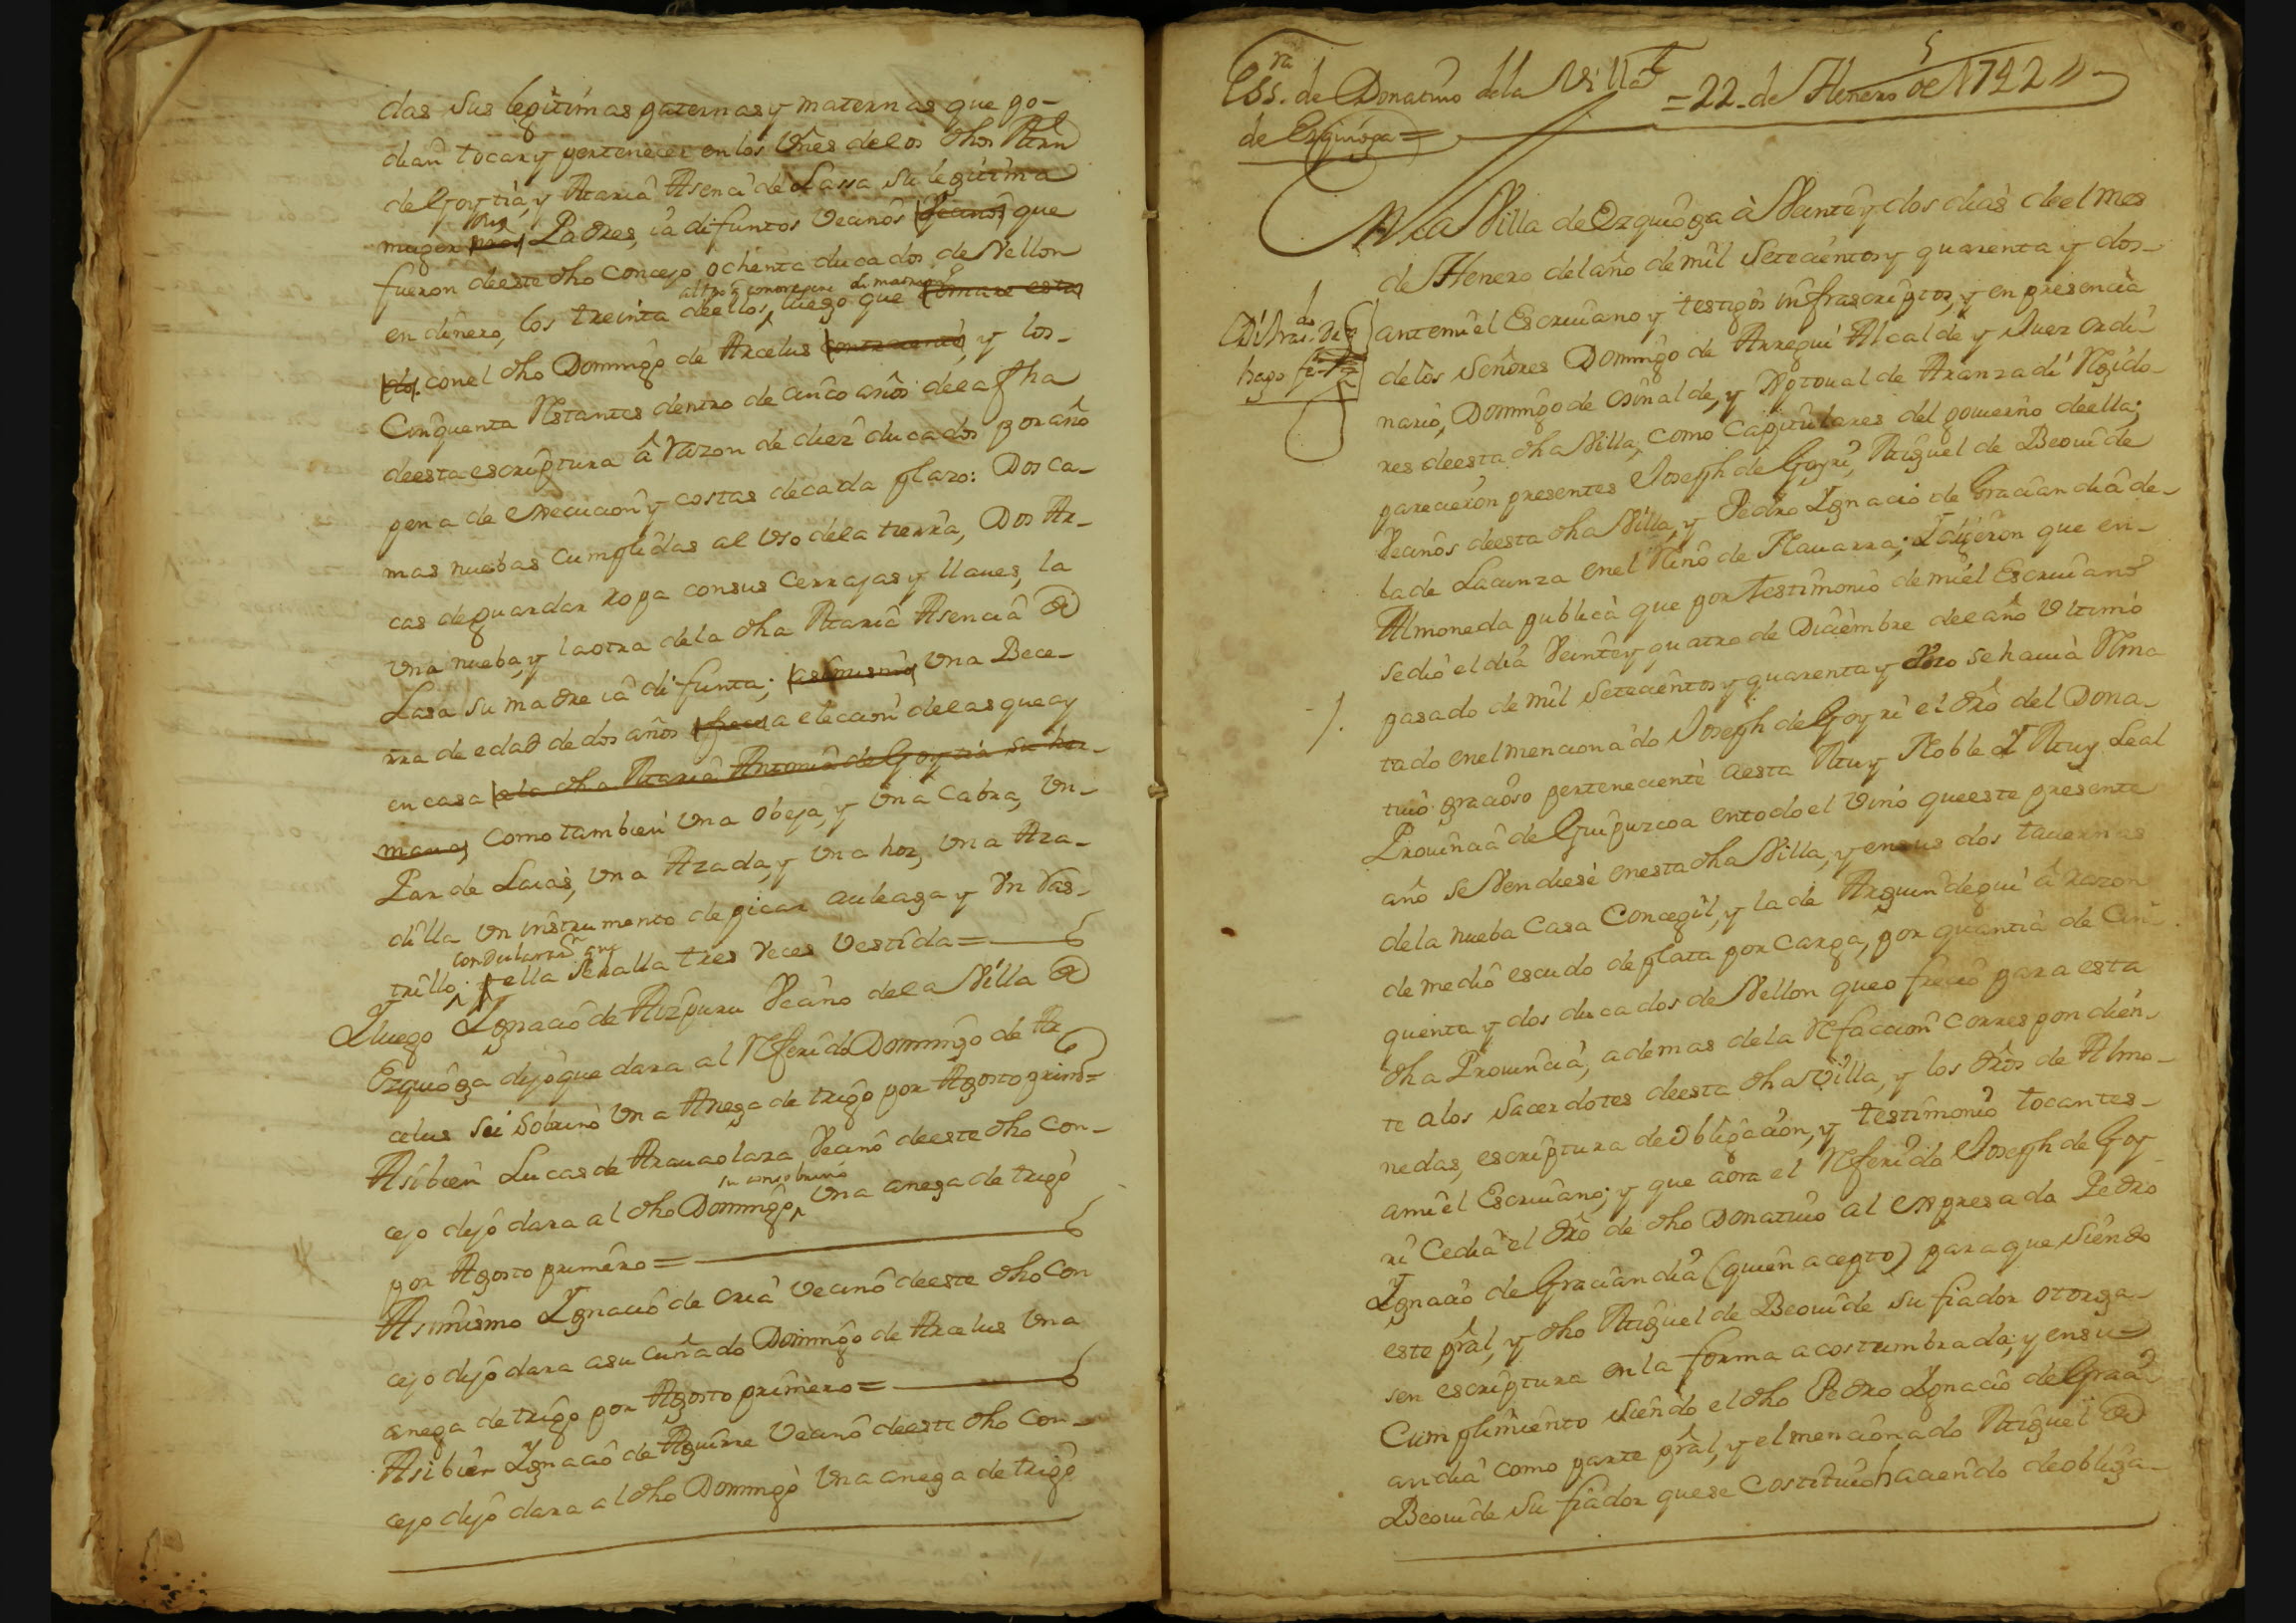 das sus legitimas paternas y maternas que po-
dian tocar y pertenecer en los vnes de los dhos Mrn
de Goytia, y Maria Asencia de Lassa su legitima
muger sus Padres, ia difuntos vecinos que
fueron de este dho concejo ochenta ducados de Vellon
en dinero, los treinta de ellos, luego que
con el dho Domingo de Arcelus y los-
Cinquenta Restantes dentro de cinco años de la fha
de esta escriptura â razon de diez ducados por año
pena de execucion y costas de cada plazo: Dos ca-
mas nuebas cumplidas al vso de la tierra, Dos Ar-
cas de guardar ropa con sus cerrajas y llaues, la
vna nueba, y la otra de la dha Maria Asencia de
Lasa su madre ia difunta; asimismo vna Bece-
rra de edad de dos años a eleccion de las que ay
en casa a la dha Maria Antonia de Goytia su her-
mana, como tambien vna obeja, y vna cabra, vn-
Par de Laias, vna Azada, y vna hoz, vna Aza-
dilla vn instrumento de picar aulaga y vn Ras-
trillo; y ella se halla tres veces vestida=
Luego Ygnacio de Aizpuru vecino de la Villa de
Ezquioga dijo que dara al Referido Domingo de Ar
celus su sobrino vna Anega de trigo por Agosto primo=
Asi bien Lucas de Araucolaza vecino de este dho con-
cejo dijo dara al dho Domingo, su consobrino vna anega de trigo
por Agosto primero=
Asimismo Ygnacio de Oria vecino de este dho con
cejo dijo dara a su cuñado Domingo de Arcelus vna
anega de trigo por Agosto primero=
Asi bien Ygnacio de Aguirre vecino de este dho con-
cejo dijo dara al dho Domingo vna anega de trigo
Essra. de Donatiuo de la Villa = 22 de Henero de 1742
de Ezquioga=
N la Villa de Ezquioga à Veinte y dos dias de el mes
de Henero del año de mil setecientos y quarenta y dos-
ante mi el Escriuano y testigos infrascriptos, y en presencia
de los señores Domingo de Arregui Alcalde y Juez ordi-
nario, Domingo de Osinalde, y Xptoual de Aranzadi Regido-
res de esta dha Villa, como Capitulares del gouierno de ella;
parecieron presentes Joseph de Goyri, Miguel de Beouide
Vecinos de esta dha Villa, y Pedro Ygnacio de Graciandia de-
la de Lacunza en el Reino de Nauarra; I dijeron que en-
Almoneda publica que por testimonio de mi el Escriuano
se dio el dia Veinte y quatro de Diciembre de el año vltimo
pasado de mil setecientos y quarenta y vno se hauia Rma
tado en el mencionado Joseph de Goyri el dro del Dona-
tiuo gracioso perteneciente a esta Muy Noble I Muy Leal
Prouincia de Guipuzcoa en todo el vino que este presente
año se Vendiese en esta dha Villa, y en sus dos tauernas
de la nueba Casa Concegil, y la de Arguindegui â razon
de medio escudo de plata por carga, por quantia de Cin-
quenta y dos ducados de Vellon que ofrecio para esta
dha Prouincia, ademas de la Refaccion correspondien-
te a los Sacerdotes de esta dha Villa, y los dros de Almo-
nedas, escriptura de obligacion, y testimonio tocantes-
a mi el Escriuano; y que aora el Referido Joseph de Goy-
ri cedia el dro de dho Donatiuo al expresado Pedro
Ygnacio de Graciandia (quien acepto) para que siendo
este pral, y dho Miguel de Beouide su fiador otorga-
sen escriptura en la forma acostumbrada; y en su-
Cumplimiento siendo el dho Pedro Ygnacio de Graci
andia como parte pral, y el mencionado Miguel de
Beouide su fiador que se costituio haciendo de obliga-